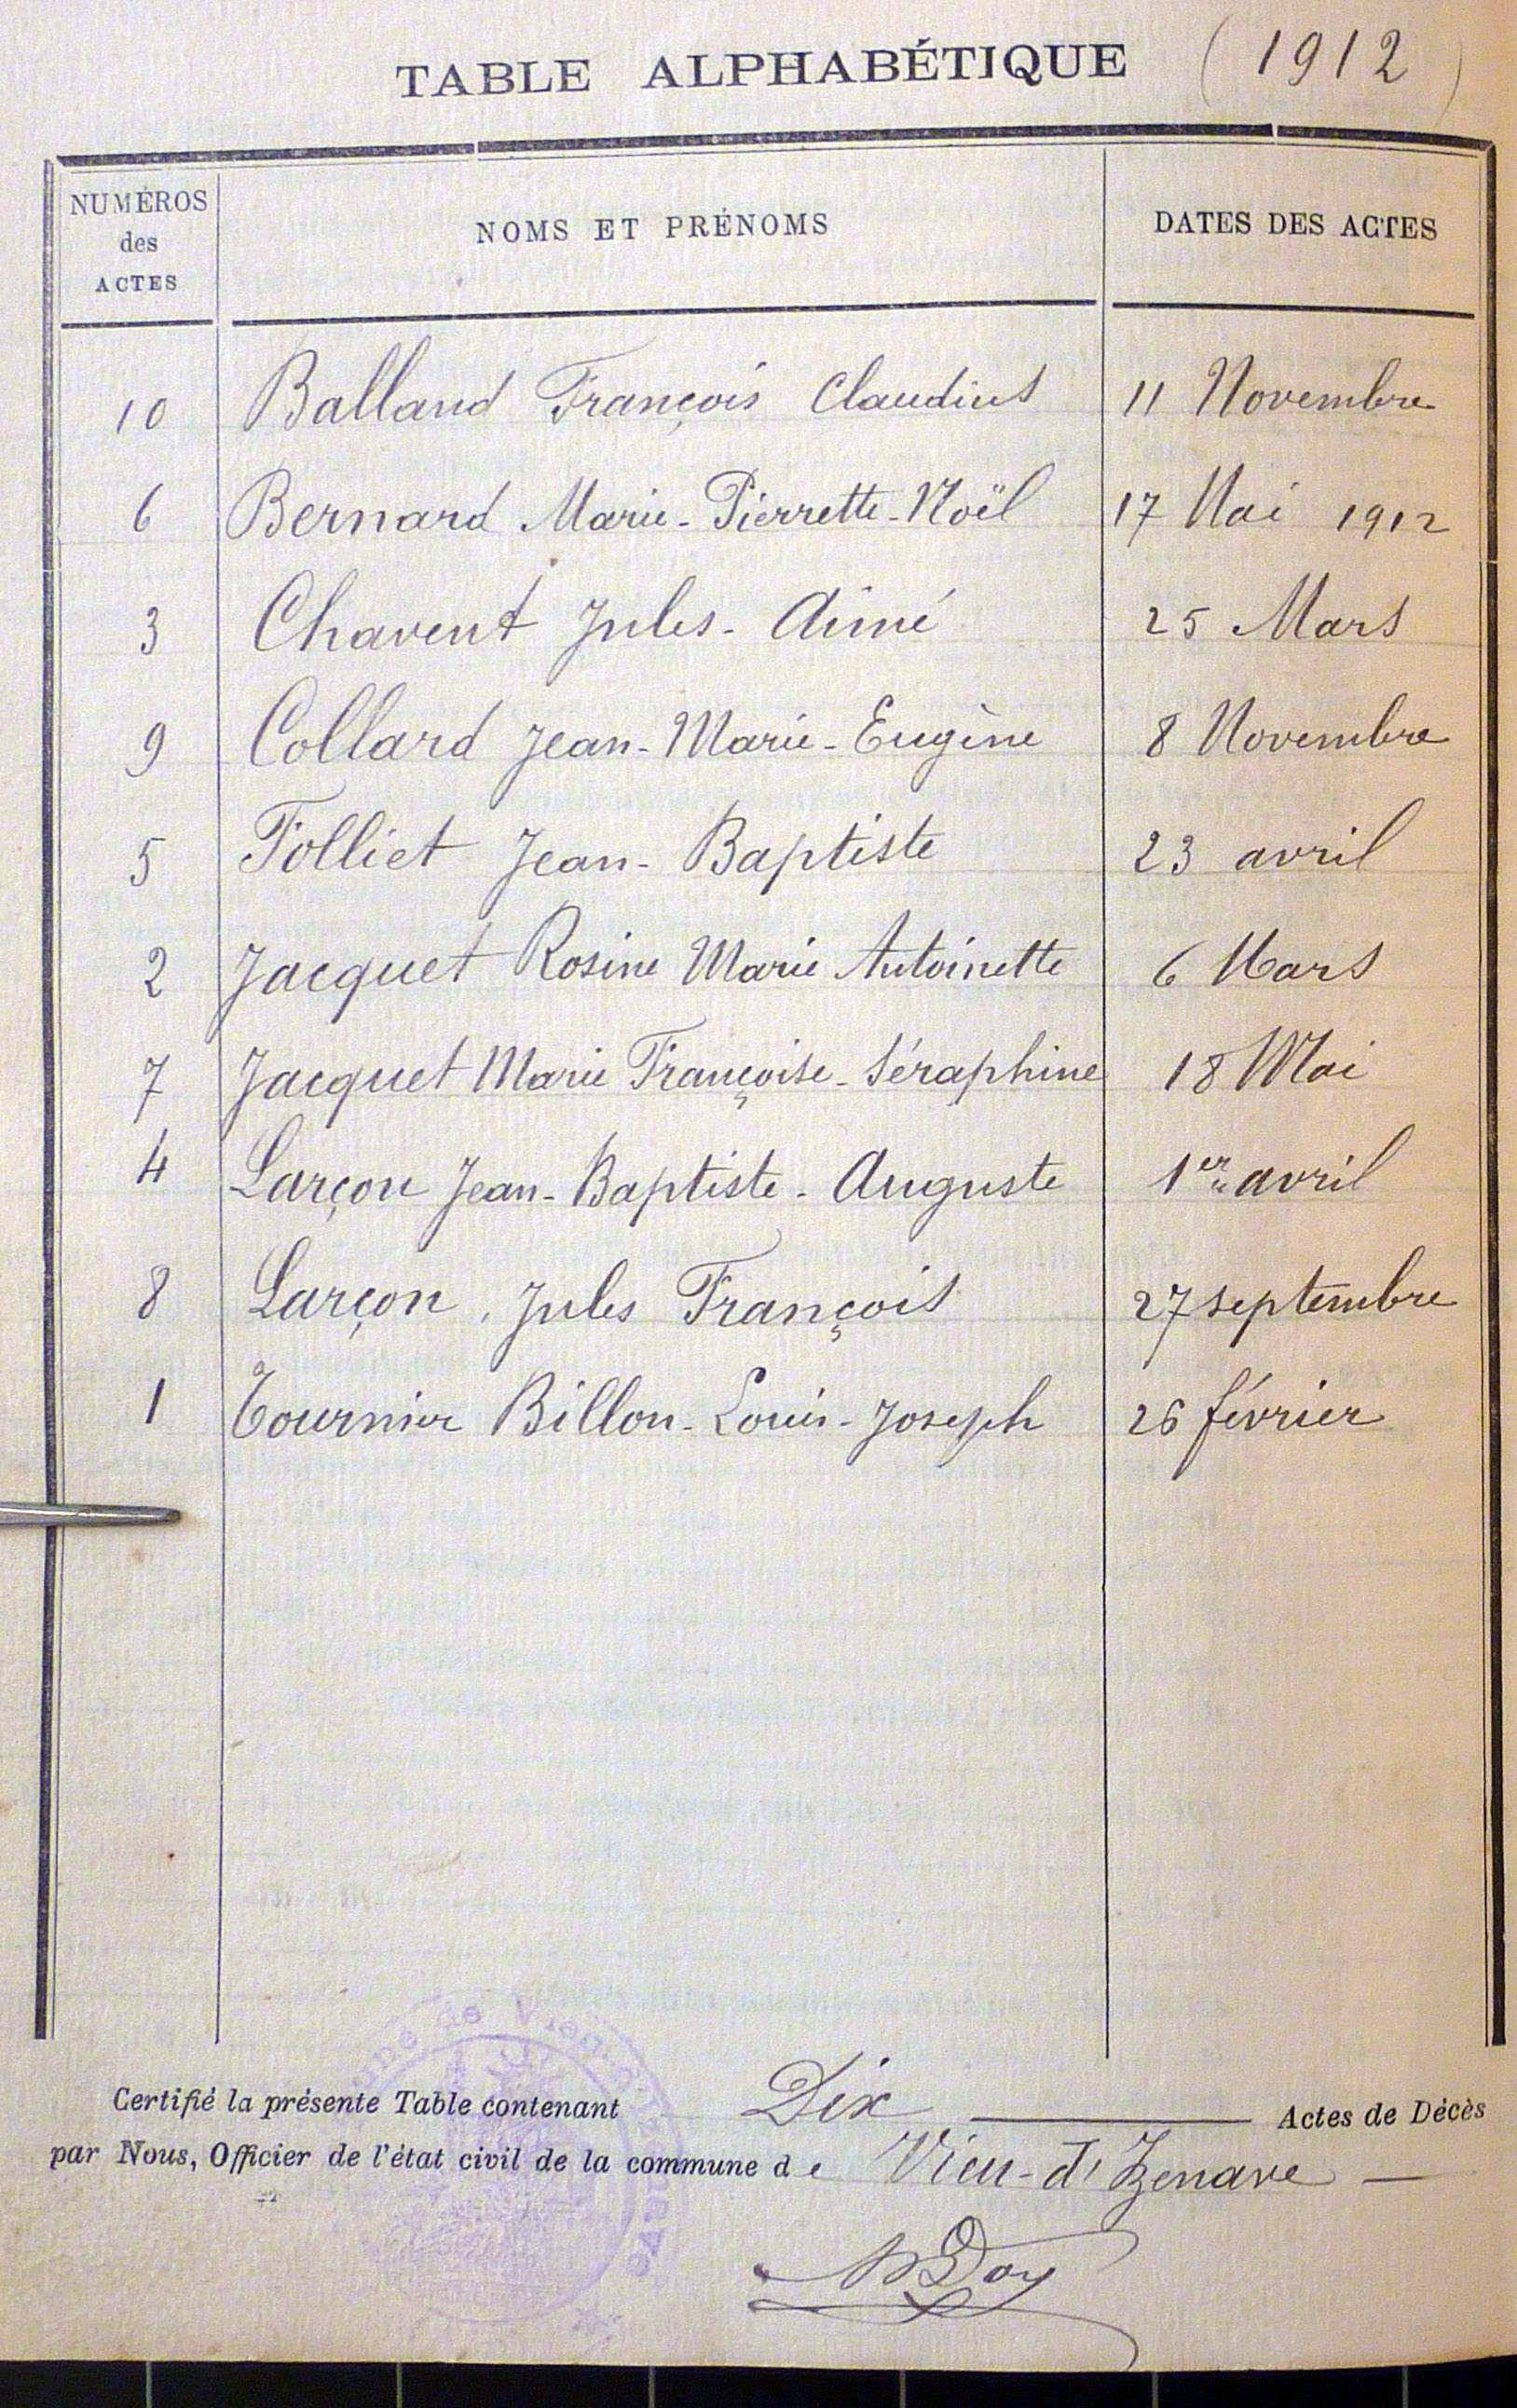 TABLE ALPHABÉTIQUE (1912)
NUMÉROS des ACTES NOMS ET PRÉNOMS DATES DES ACTES
10 Balland François Claudius 11 Novembre
6 Bernard Marie-Pierrette-Noël 17 Mai 1912
3 Chavent Jules-Aimé 25 Mars
9 Collard Jean-Marie-Eugène 8 Novembre
5 Folliet Jean-Baptiste 23 avril
2 Jacquet Rosine Marie Antoinette 6 Mars
7 Jacquet Marie Françoise-Séraphine 18 Mai
4 Larçon Jean-Baptiste-Auguste 1er avril
8 Larçon Jules François 27 septembre
1 Tournier Billon-Louis-Joseph 26 février
Certifié la présente Table contenant Dix Actes de Décès
par Nous, Officier de l'état civil de la commune de Vieu-d'Izenave